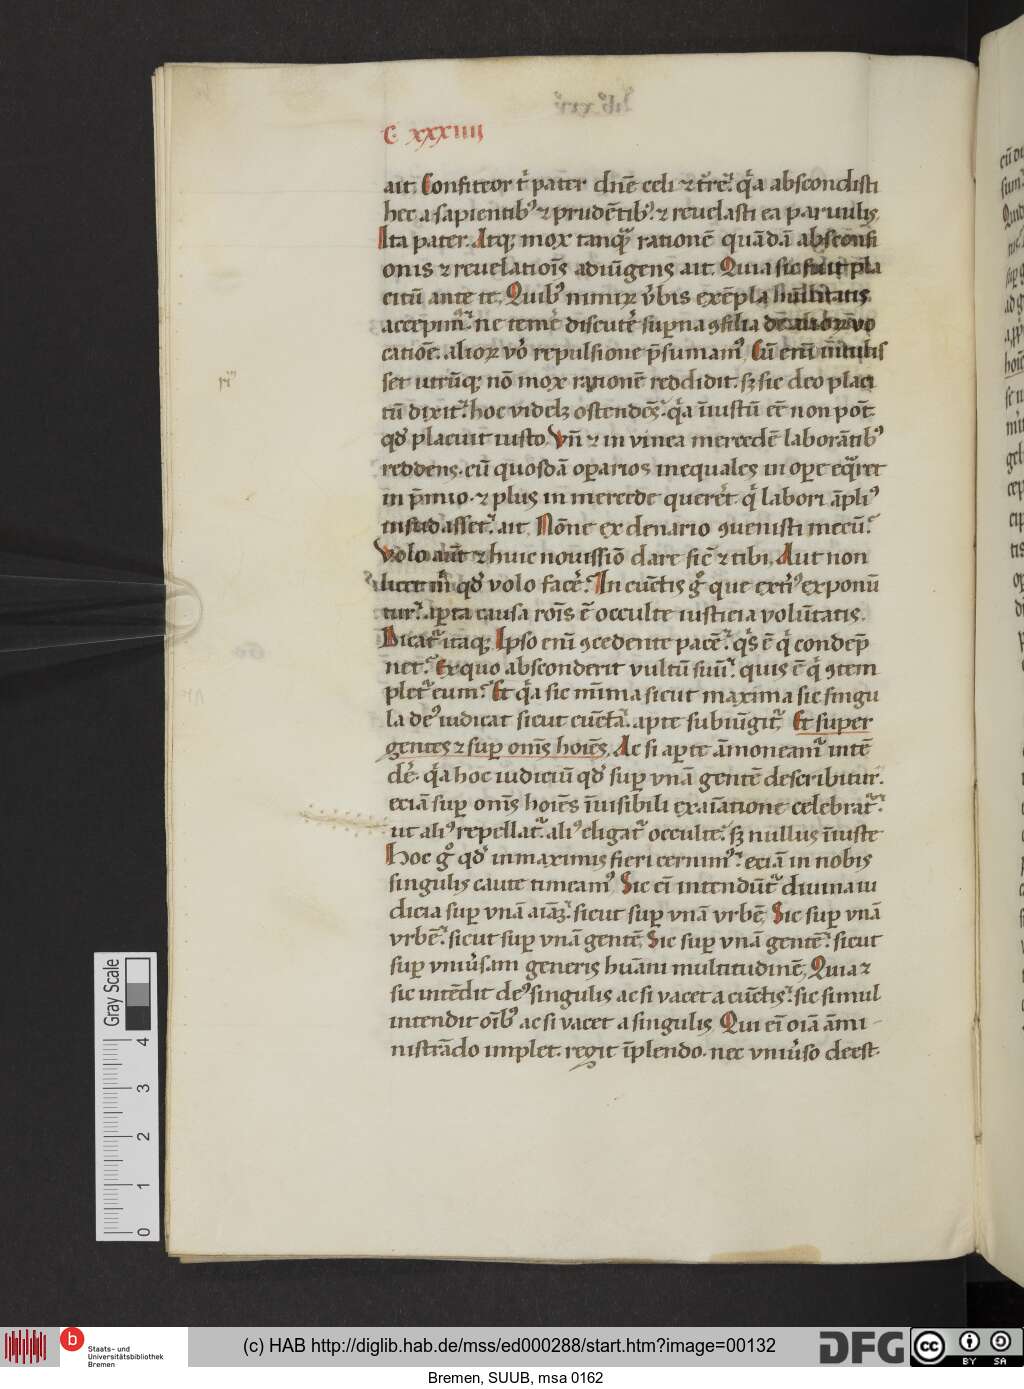 C. xxxiiii
ait. Confiteor t' pater dnē celi ⁊ t're. q̄a abscondisti
hec a sapientibꝰ ⁊ prudētibꝰ ⁊ reuelasti ea paruulis.
Ita pater. Atqꝫ mox tanquā rationē quādā absconsi
onis ⁊ reuelatiōis adiūgens ait. Quia sic fuit pla
citū ante te. Quibꝰ nimiꝝ v̄bis exēpla hūilitatis
accepimꝰ. ne temē discutē suꝑna ꝯsilia de alioꝝ vo
catiōe. alioꝝ vō repulsione p̄sumamꝰ. Cū eni intulis
set utrūqꝫ nō mox rationē reddidit. sꝫ sic deo placi
tū dixit. hoc videlꝫ ostendēs. q̄a iniustū eē non pōt
qd̓ placuit iusto. Vn̄ ⁊ in vinea mercedē laborātibꝰ
reddens. cū quosdā oꝑarios inequales in oꝑe eq̄ret
in p̄mio. ⁊ plus in mercede querēt q̓ labori āpliꝰ
insudasset. ait. Nōne ex denario ꝯuenisti mecū?
Volo aūt ⁊ huic nouissiō dare sic̄ ⁊ tibi. Aut non
licet m̓ qd̓ volo facē? In cūctis g̓ que extiꝰ exponū
tur. aꝑta causa rōis ē occulte iusticia volūtatis.
Dicat᷑ itaqꝫ Ipso eni ꝯcedente pacē. q̓s ē q̓ condēp
net? Ex quo absconderit vultū suū. quis ē q̓ ꝯtem
plet᷑ eum? Et q̄a sic mīma sicut maxima sic singu
la deꝰ iudicat sicut cūcta. apte subiūgit᷑. Et super
gentes ⁊ suꝑ oms hoiēs. Ac si aꝑte āmoneam᷑ intē
dē. q̄a hoc iudiciū qd̓ suꝑ vnā gentē describitur.
eciā suꝑ oms hoiēs īuisibili exaiatione celebrat᷑.
ut aliꝰ repellat᷑. aliꝰ eligat᷑ occulte. sꝫ nullus iniuste
Hoc g̓ qd̓ in maximis fieri cernimꝰ. eciā in nobis
singulis caute timeamꝰ. Sic ei intendūt᷑ diuina iu
dicia suꝑ vnā aiāꝫ. sicut suꝑ vnā vrbē. Sic suꝑ vnā
vrbē. sicut suꝑ vnā gentē. Sic suꝑ vnā gentē. sicut
suꝑ vniūsam generis hūani multitudinē. Quia ⁊
sic intēdit deꝰ singulis ac si vacet a cūctis. sic simul
intendit oībꝰ ac si vacet a singulis. Qui ei oiā āmi
nistrādo implet. regit īplendo. nec vniūso deest.
Gray Scale
4
3
2
1
0
b
Staats- und
Universitätsbibliothek
Bremen
(c) HAB http://diglib.hab.de/mss/ed000288/start.htm?image=00132
DFG
cc
BY SA
Bremen, SUUB, msa 0162